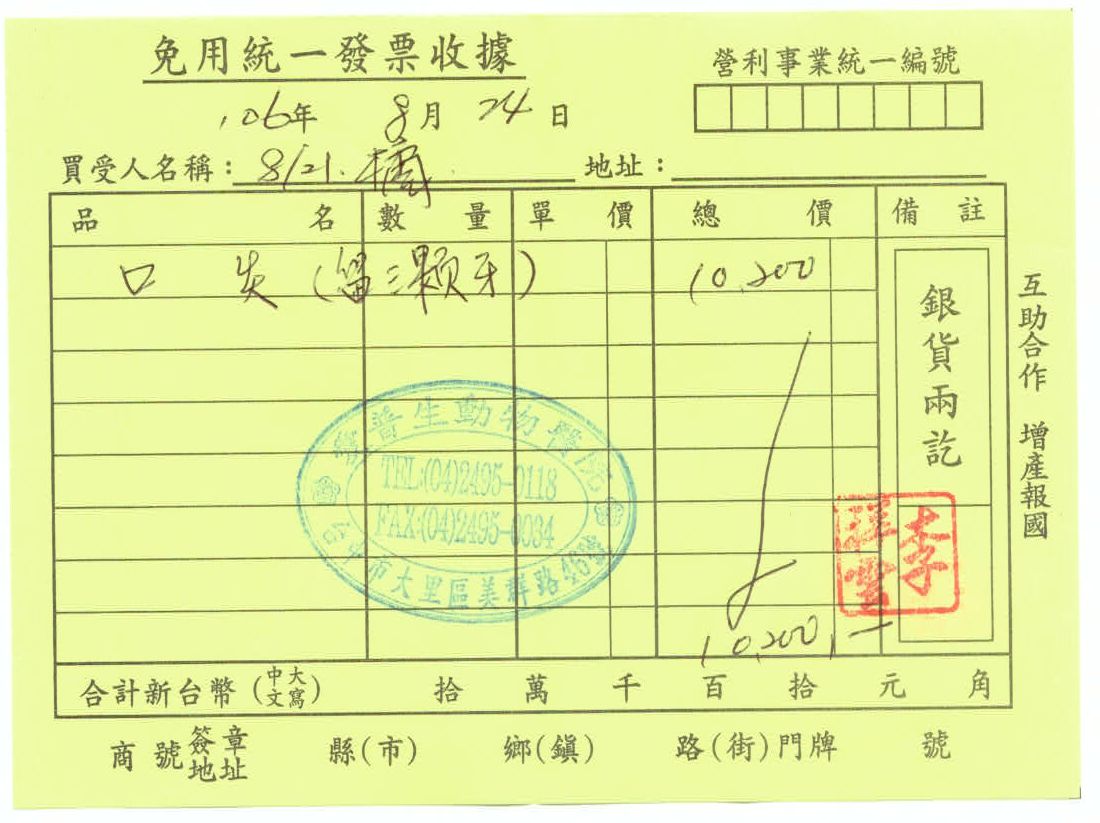 免用統一發票收據
營利事業統一編號
106年 8月 24日
買受人名稱：8/21. 橘 地址：
品名 數量 單價 總價 備註
口炎(留三顆牙) 10,200
銀貨兩訖
互助合作 增產報國
普生動物醫院
TEL:(04)2495-0118
FAX:(04)2495-0034
台中市大里區美群路46號
李
祥豐
10,200,-
合計新台幣(中文大寫) 拾 萬 千 百 拾 元 角
商號簽章地址 縣(市) 鄉(鎮) 路(街)門牌 號